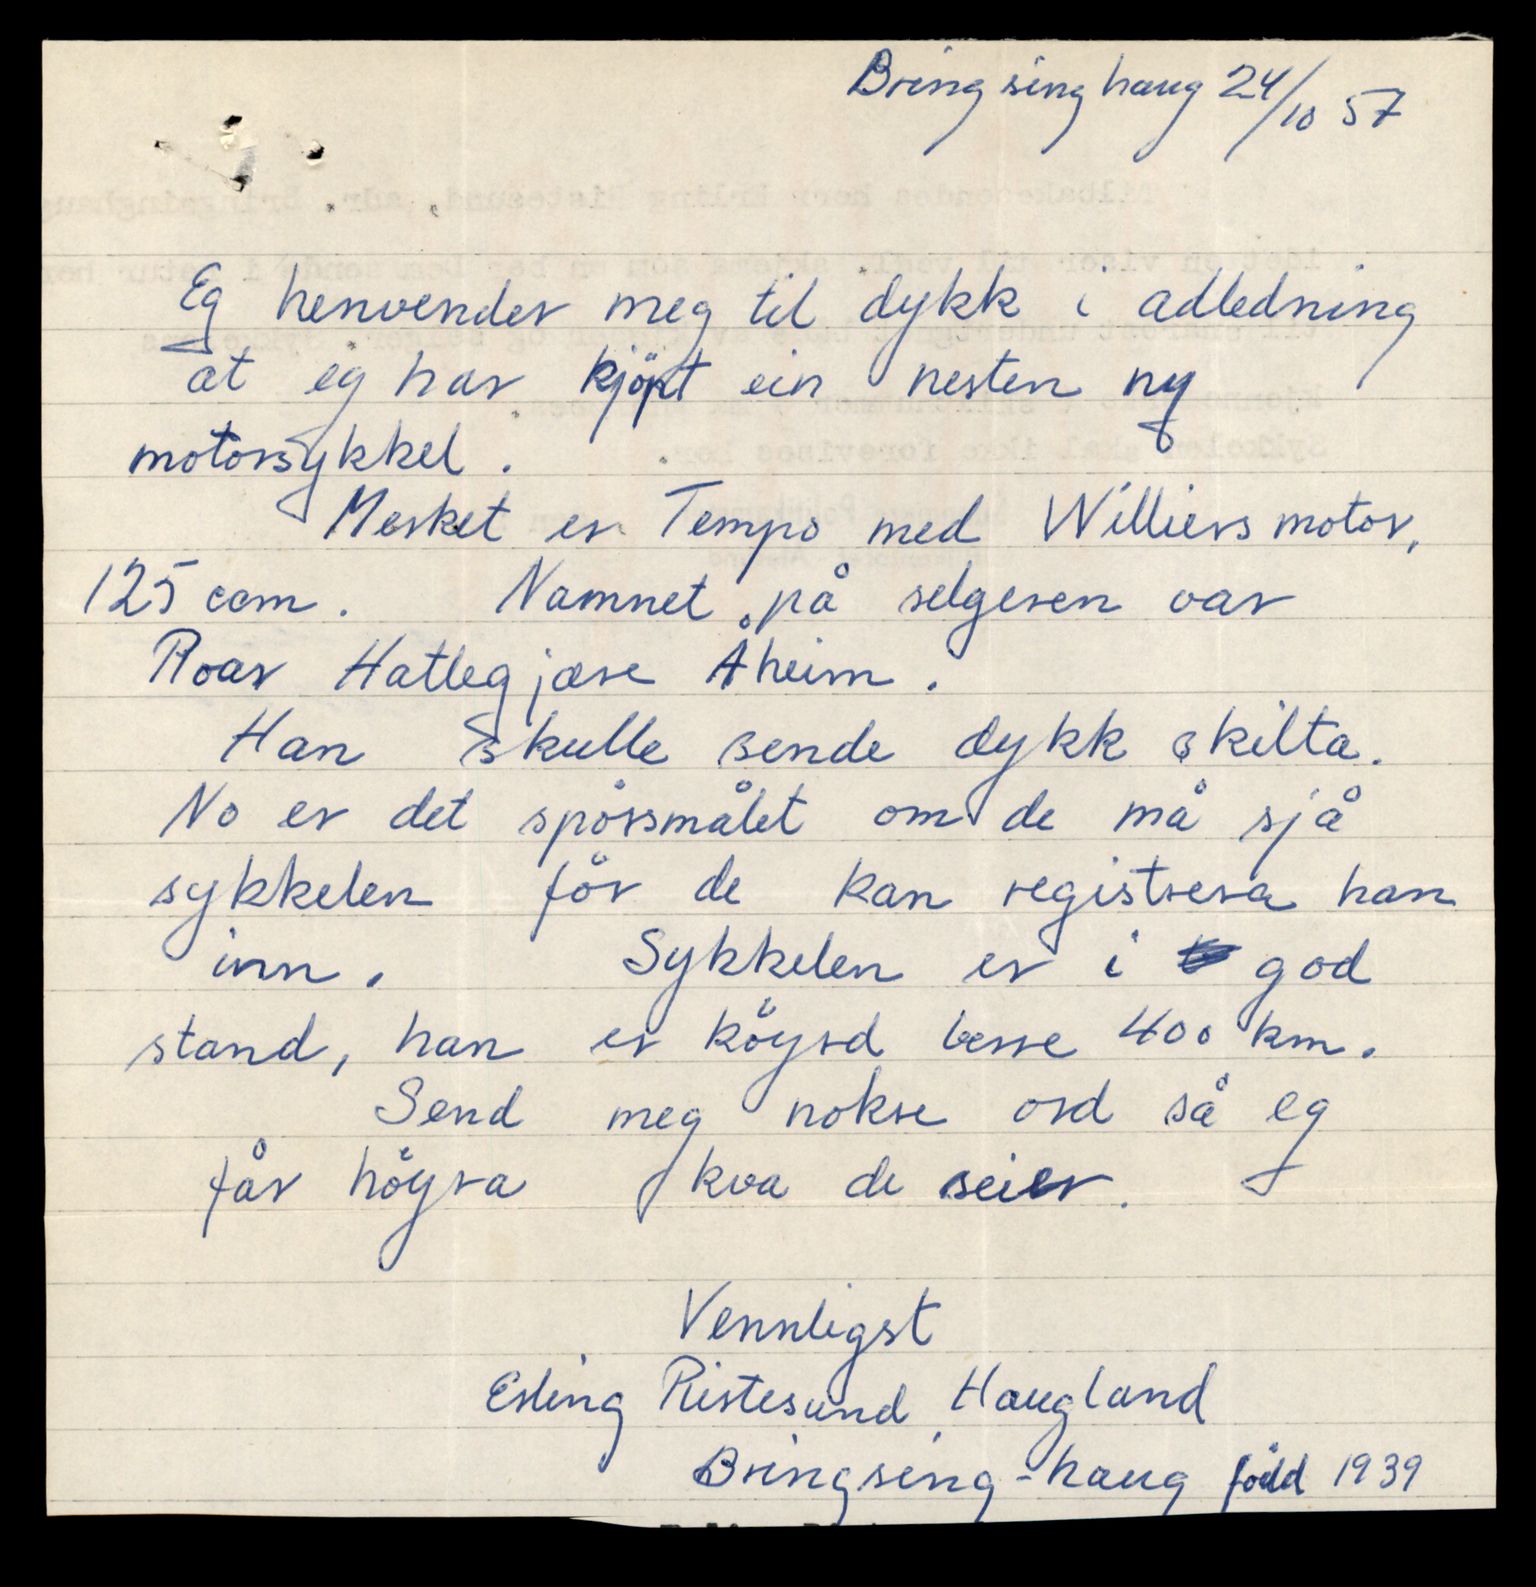 Bringsinghaug 24/10 57
Eg henvender meg til dykk i adledning
at eg har kjöpt ein nesten ny
motorsykkel.
Merket er Tempo med Williers motor,
125 ccm. Namnet på selgeren var
Roar Hatlegjære Åheim.
Han skulle sende dykk skilta.
No er det spörsmålet om de må sjå
sykkelen för de kan registrera han
inn. Sykkelen er i god
stand, han er köyrd berre 400 km.
Send meg nokre ord så eg
får höyra kva de seier.
Vennligst
Erling Ristesund Haugland
Bringsing-haug född 1939